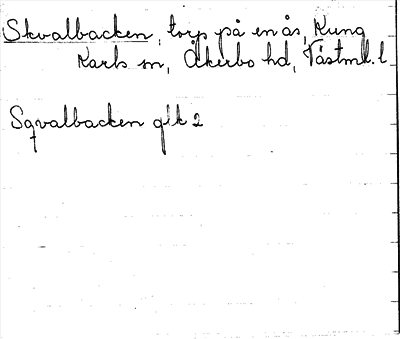 Skvalbacken, torp på en ås, Kung
Karls sn, Åkerbo hd, Västml. l
Sqvalbacken glk 2